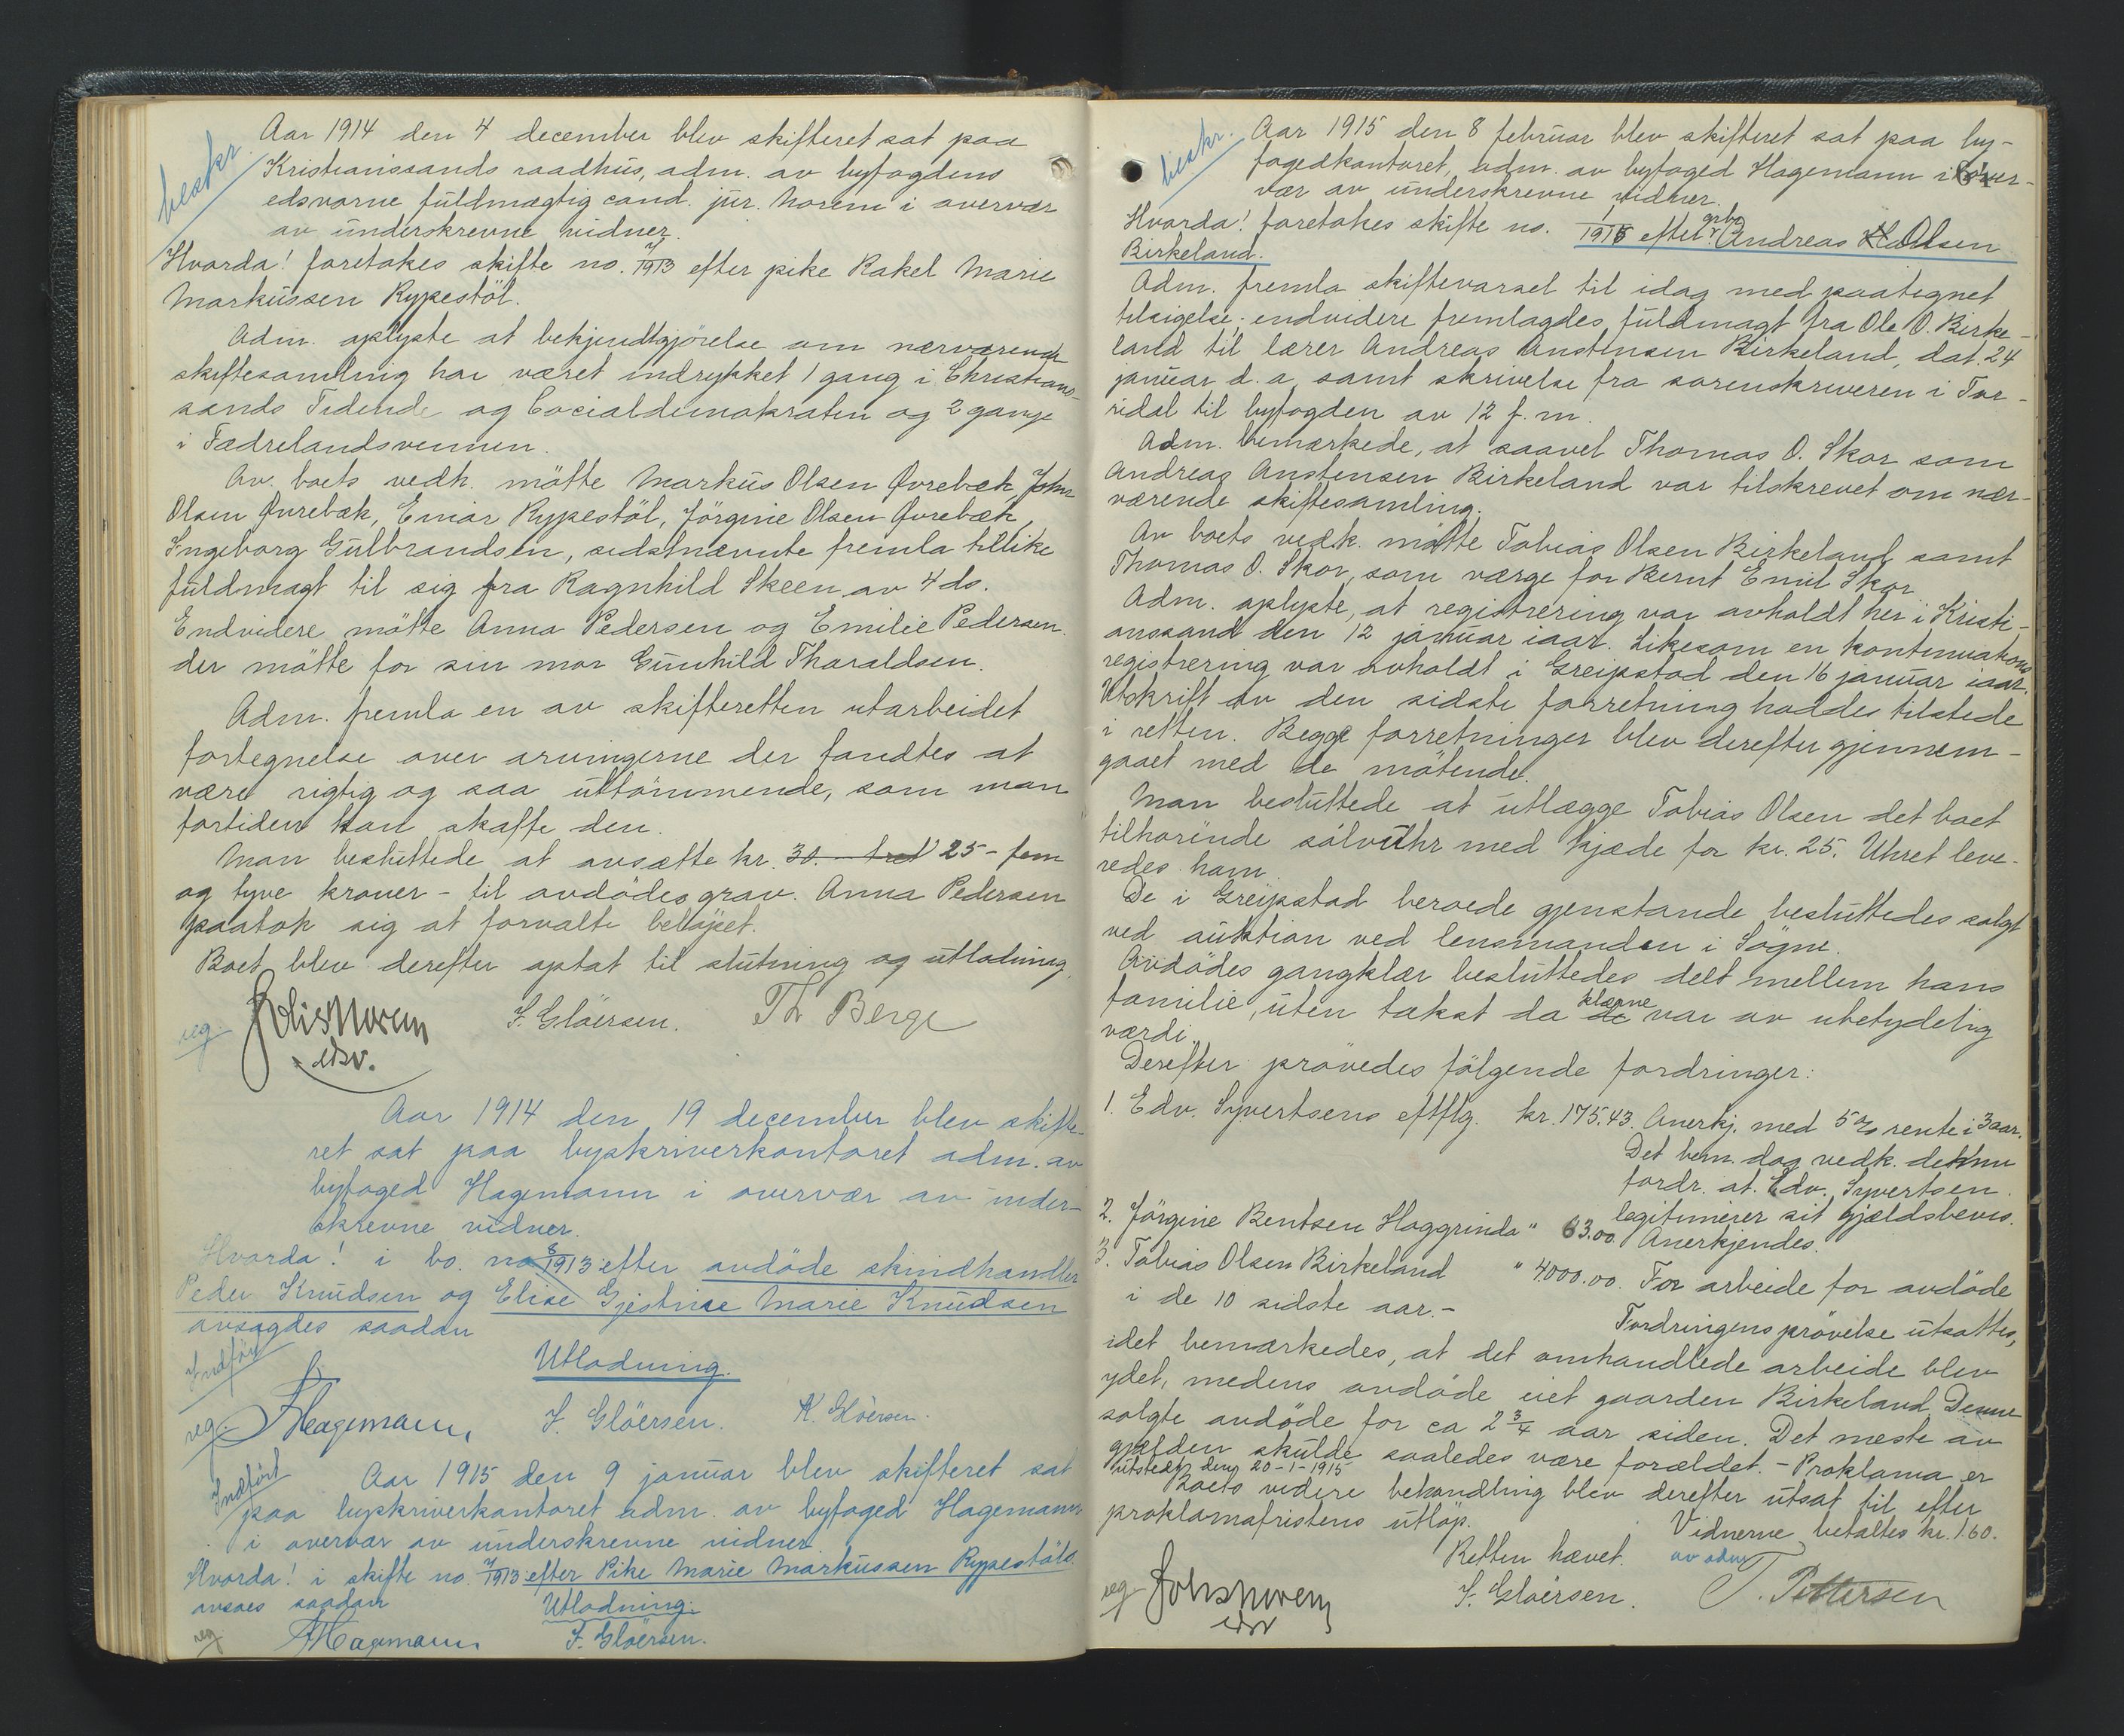 beskr.
Aar 1914 den 4 december blev skifteret sat paa
Kristianssands raadhus, adm. av byfogdens
edsvorne fuldmægtig cand. jur. Norem i overvær
av underskrevne vidner.
Hvorda! foretokes skifte no. 7/1913 efter pike Rakel Marie
Markussen Rypestöl.
Adm. oplyste at bekjendtgjörelse om nærværende
skiftesamling har været indrykket 1 gang i Christians-
sands Tidende og Socialdemokraten og 2 gange
i Fædrelandsvennen.
Av boets vedk. mötte Markus Olsen Øvrebæk, John
Olsen Øvrebæk, Einar Rypestöl, Jörgine Olsen Øvrebæk,
Ingeborg Gulbrandsen, sidstnævnte fremla tillike
fuldmagt til sig fra Ragnhild Skeen av 4 ds.
Endvidere mötte Anna Pedersen og Emilie Pedersen.
der mötte for sin mor Gunhild Tharaldsen.
Adm. fremla en av skifteretten utarbeidet
fortegnelse over arvingerne der fandtes at
være rigtig og saa uttömmende, som man
fortiden kan skaffe den.
Man besluttede at avsætte kr. 30. - tret 25 - fem
og tyve kroner - til avdödes grav. Anna Pedersen
paatok sig at forvalte belöpet.
Boet blev derefter optat til slutning og utlodning.
reg. Johs Norem F. Glöersen. Th Berge
edsv.
Aar 1914 den 19 december blev skifte-
ret sat paa byskriverkontoret adm. av
byfoged Hagemann i overvær av under-
skrevne vidner.
Hvorda! i bo. no 8/1913 efter avdöde skindhandler
Peder Knudsen og Elise Gjestrine Marie Knudsen
avsagdes saadan
Indført
Utlodning.
reg. Hagemann, F. Glöersen. K. Glöersen.
Indført
Aar 1915 den 9 januar blev skifteret sat
paa byskriverkontoret adm. av byfoged Hagemann
i overvær av underskrevne vidner.
Hvorda! i skifte no. 7/1913 efter Pike Marie Markussen Rypestöl
avsaes saadan
Utlodning.
reg Hagemann F. Glöersen.
beskr.
Aar 1915 den 8 februar blev skifteret sat paa by-
fogedkontoret, adm. av byfoged Hagemann i over-
vær av underskrevne vidner.
Hvorda! foretokes skifte no. 1/1915 efter grbr. Andreas Olsen
Birkeland.
Adm. fremla skiftevarsel til idag med paategnet
tilsigelse; endvidere fremlagdes fuldmagt fra Ole O. Birke-
land til lærer Andreas Anstensen Birkeland, dat. 24
januar d. a. samt skrivelse fra sorenskriveren i Tor-
ridal til byfogden av 12 f. m.
Adm. bemærkede, at saavel Thomas O. Skor som
Andreas Anstensen Birkeland var tilskrevet om nær-
værende skiftesamling.
Av boets vedk. mötte Tobias Olsen Birkeland samt
Thomas O. Skor, som værge for Bernt Emil Skor.
Adm. oplyste, at registrering var avholdt her i Kristi-
anssand den 12 januar iaar. Likesom en kontinuations
registrering var avholdt i Greipstad den 16 januar iaar.
Utskrift av den sidste forretning haddes tilstede
i retten. Begge forretninger blev derefter gjennem-
gaaet med de mötende.
Man besluttede at utlægge Tobias Olsen det boet
tilhorende sölvuhr med kjæde for kr. 25. Uhret leve-
redes ham.
De i Greipstad beroede gjenstande besluttedes solgt
ved auktion ved lensmanden i Sögne.
Avdödes gangklær besluttedes delt mellem hans
familie, uten takst da de klærne var av ubetydelig
værdi.
Derefter prövedes fölgende fordringer:
1. Edv. Syvertsens efftlg. kr. 175.43. Anerkj. med 5% rente i 3 aar.
Det bem. dog vedk. denne
fordr. at Edv. Syvertsen
legitimerer sit gjældsbevis.
2. Jörgine Bentsen Haggrinda " 63.00 Anerkjendes.
3. Tobias Olsen Birkeland " 4000.00. For arbeide for avdöde
i de 10 sidste aar. -
Fordringens prövelse utsattes,
idet bemærkedes, at det omhandlede arbeide blev
ydet, medens avdöde eiet gaarden Birkeland. Denne
solgte avdöde for ca 2 3/4 aar siden. Det meste av
gjælden skulde saaledes være forældet. - Proklama er
utstedt den 20-1-1915
Boets videre behandling blev derefter utsat til efter
proklamafristens utlöp.
Vidnerne betaltes kr. 1.60.
av adm.
Retten hævet.
reg. Johs Norem F. Glöersen. T. Pettersen
edsv